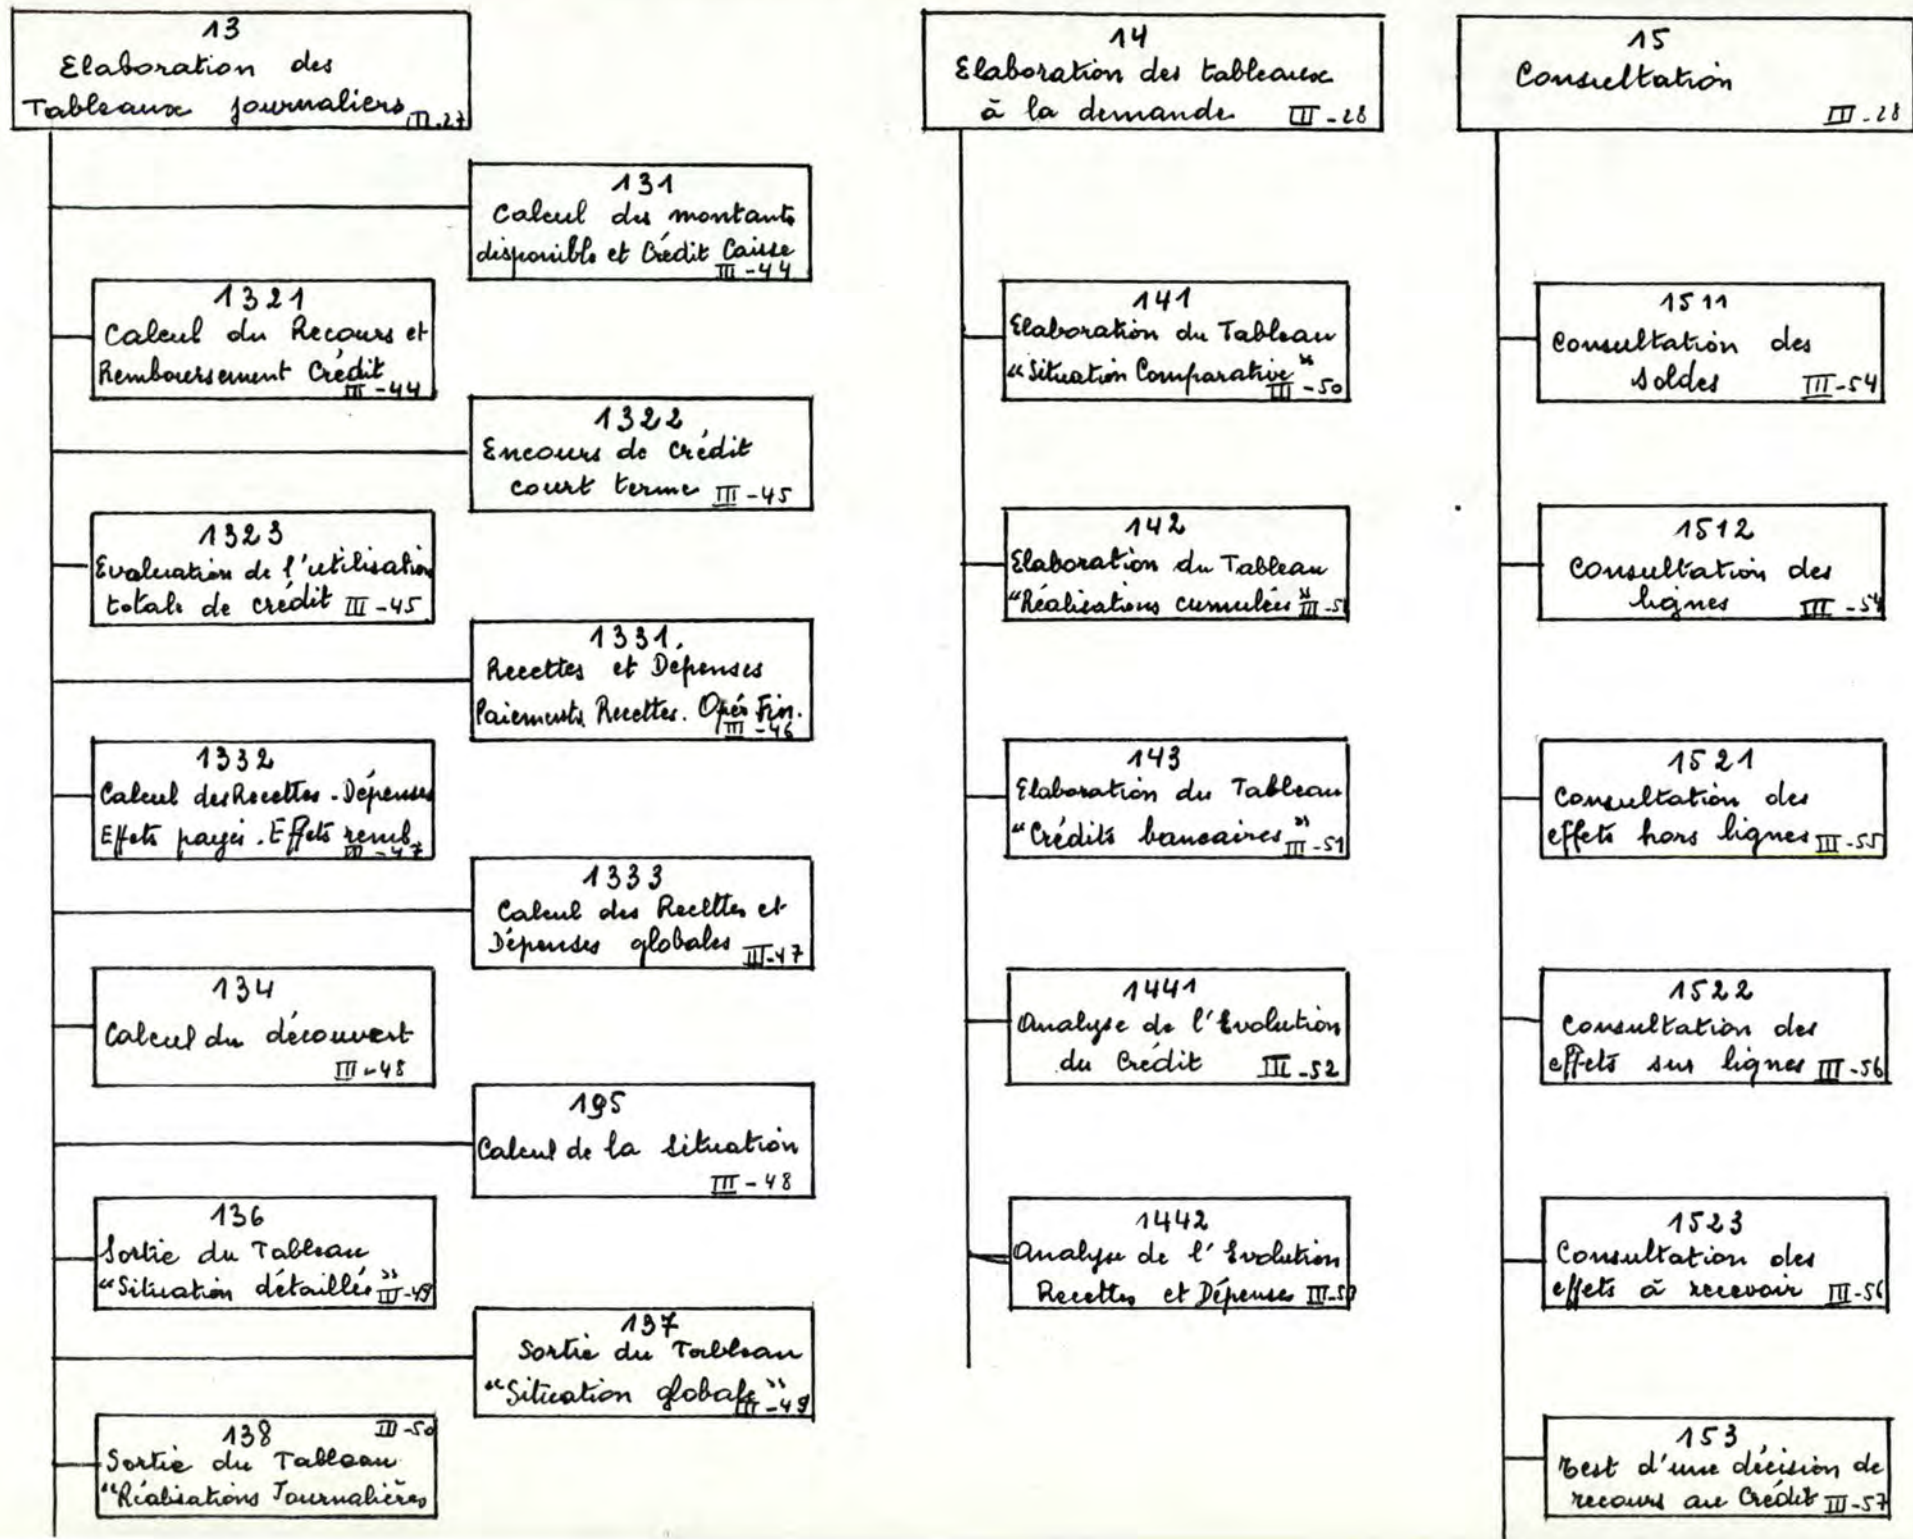 13
Elaboration des
Tableaux journaliers III.27
131
Calcul des montants
disponible et Crédit Caisse
III-44
1321
Calcul du Recours et
Remboursement Crédit
III-44
1322
Encours de crédit
court terme III-45
1323
Evaluation de l'utilisation
totale de crédit III-45
1331.
Recettes et Dépenses
Paiements Recettes. Opér Fin.
III-46
1332
Calcul des Recettes-Dépenses
Effets payés. Effets remb.
III-47
1333
Calcul des Recettes et
Dépenses globales III-47
134
Calcul du découvert
III-48
195
Calcul de la situation
III-48
136
Sortie du Tableau
"Situation détaillés" III-49
137
Sortie du Tableau
"Situation globale"
III-49
138 III-50
Sortie du Tableau
"Réalisations Journalières
14
Elaboration des tableaux
à la demande III-28
141
Elaboration du Tableau
"Situation Comparative"
III-50
142
Elaboration du Tableau
"Réalisations cumulées" III-51
143
Elaboration du Tableau
"Crédits bancaires" III-51
1441
Analyse de l'Evolution
du Crédit III-52
1442
Analyse de l'Evolution
Recettes et Dépenses III-53
15
Consultation
III-28
1511
Consultation des
soldes III-54
1512
Consultation des
lignes III-54
1521
Consultation des
effets hors lignes III-55
1522
Consultation des
effets sur lignes III-56
1523
Consultation des
effets à recevoir III-56
153
Test d'une décision de
recours au Crédit III-57